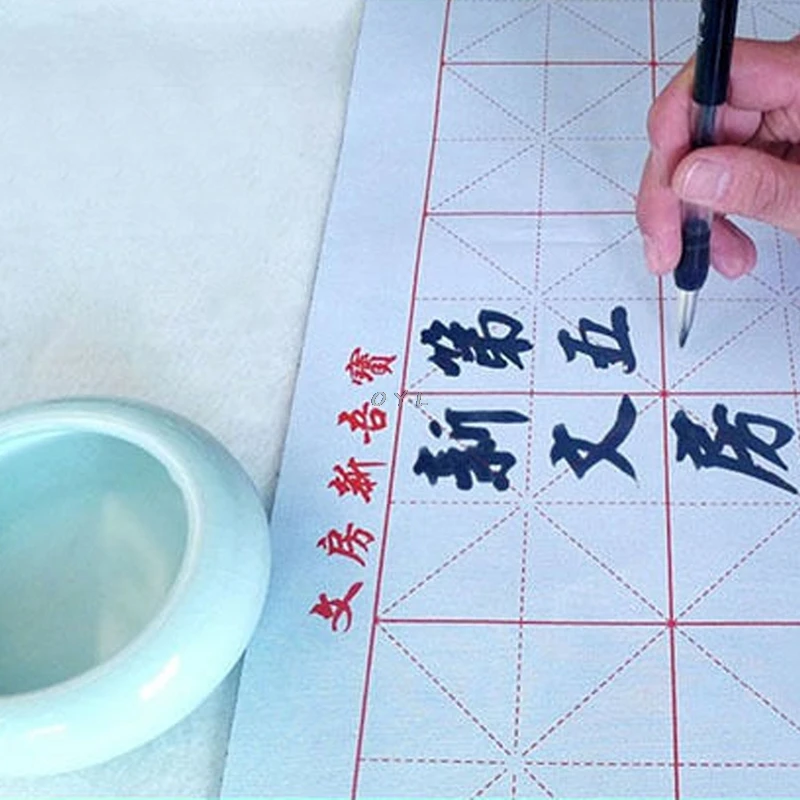 第五
新文房
文房新吾寶
OYL